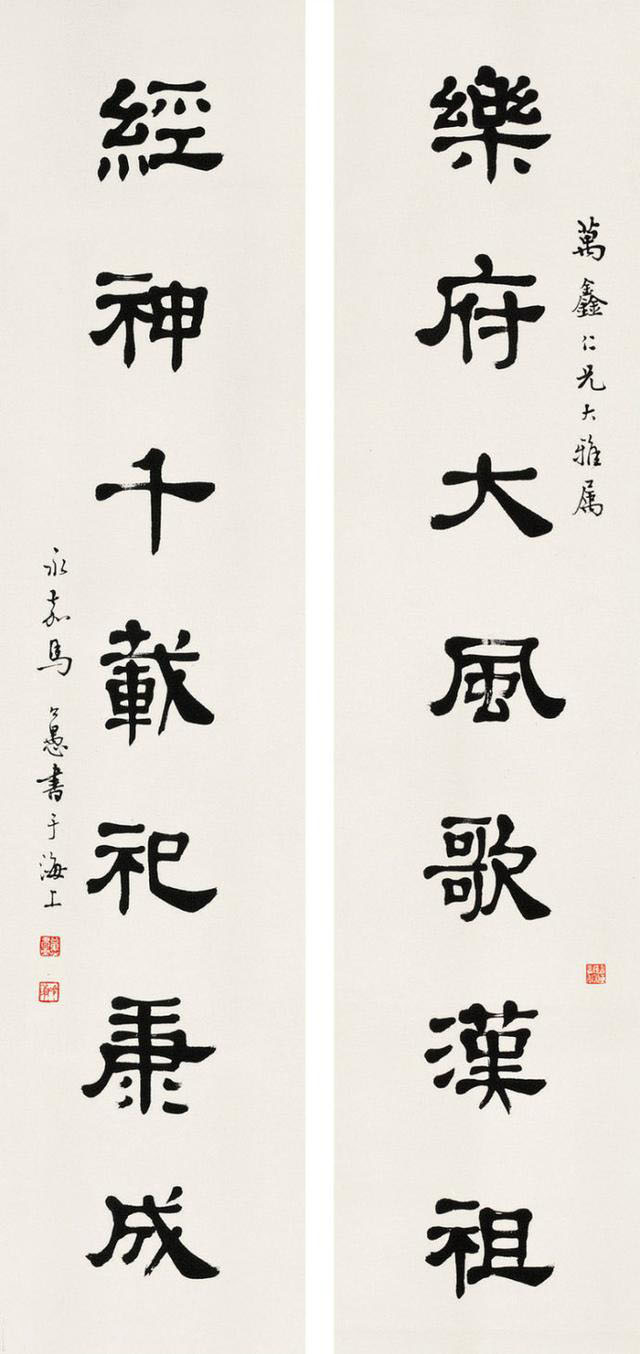 樂府大風歌漢祖
萬鑫仁兄大雅属
經神千載祀康成
永嘉馬公愚書于海上